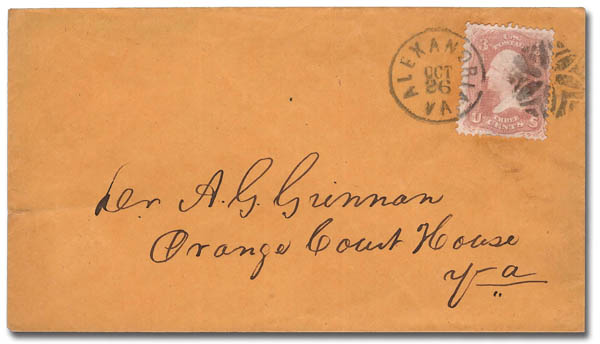 ALEXANDRIA
OCT
26
VA.
U.S. POSTAGE
3
U THREE S
CENTS
Dr A. G. Grinnan
Orange Court House
Va